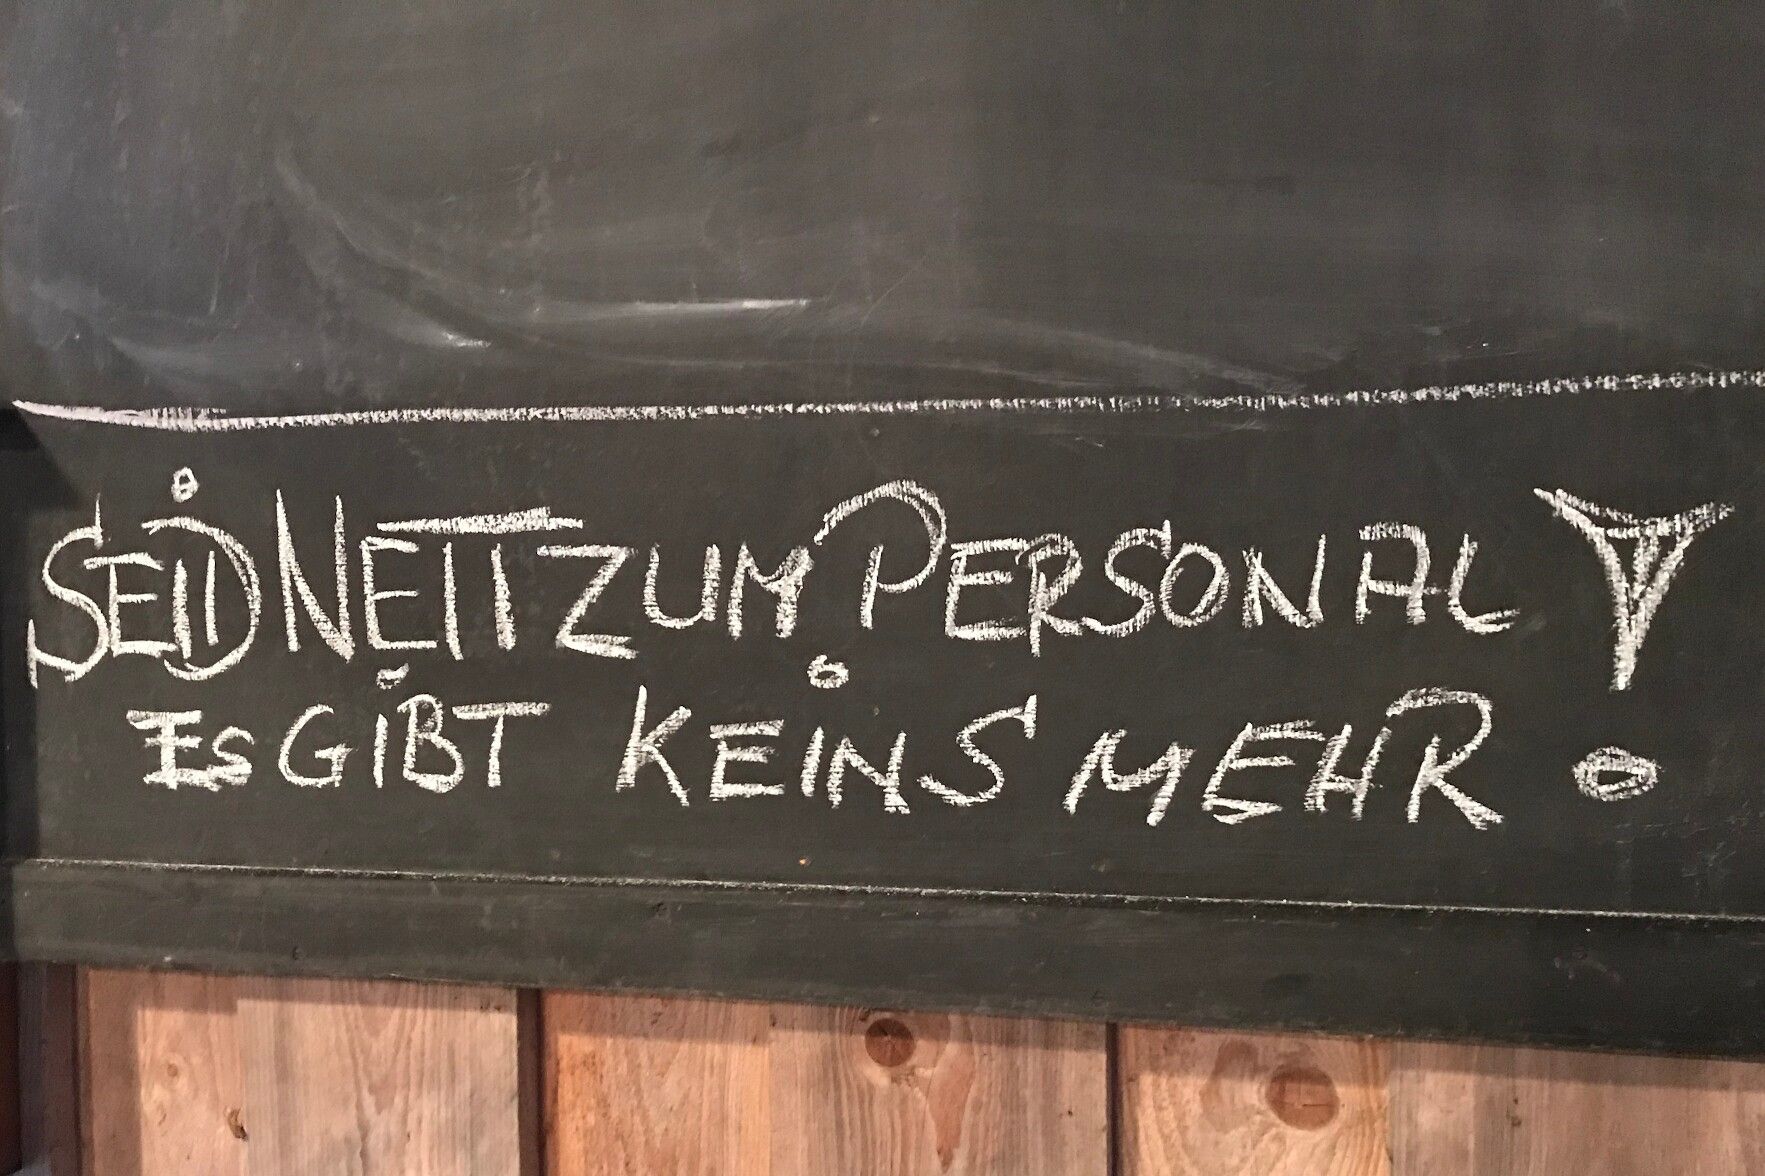 SEiD NETT ZUM PERSONAL !
ES GiBT KEiNS MEHR